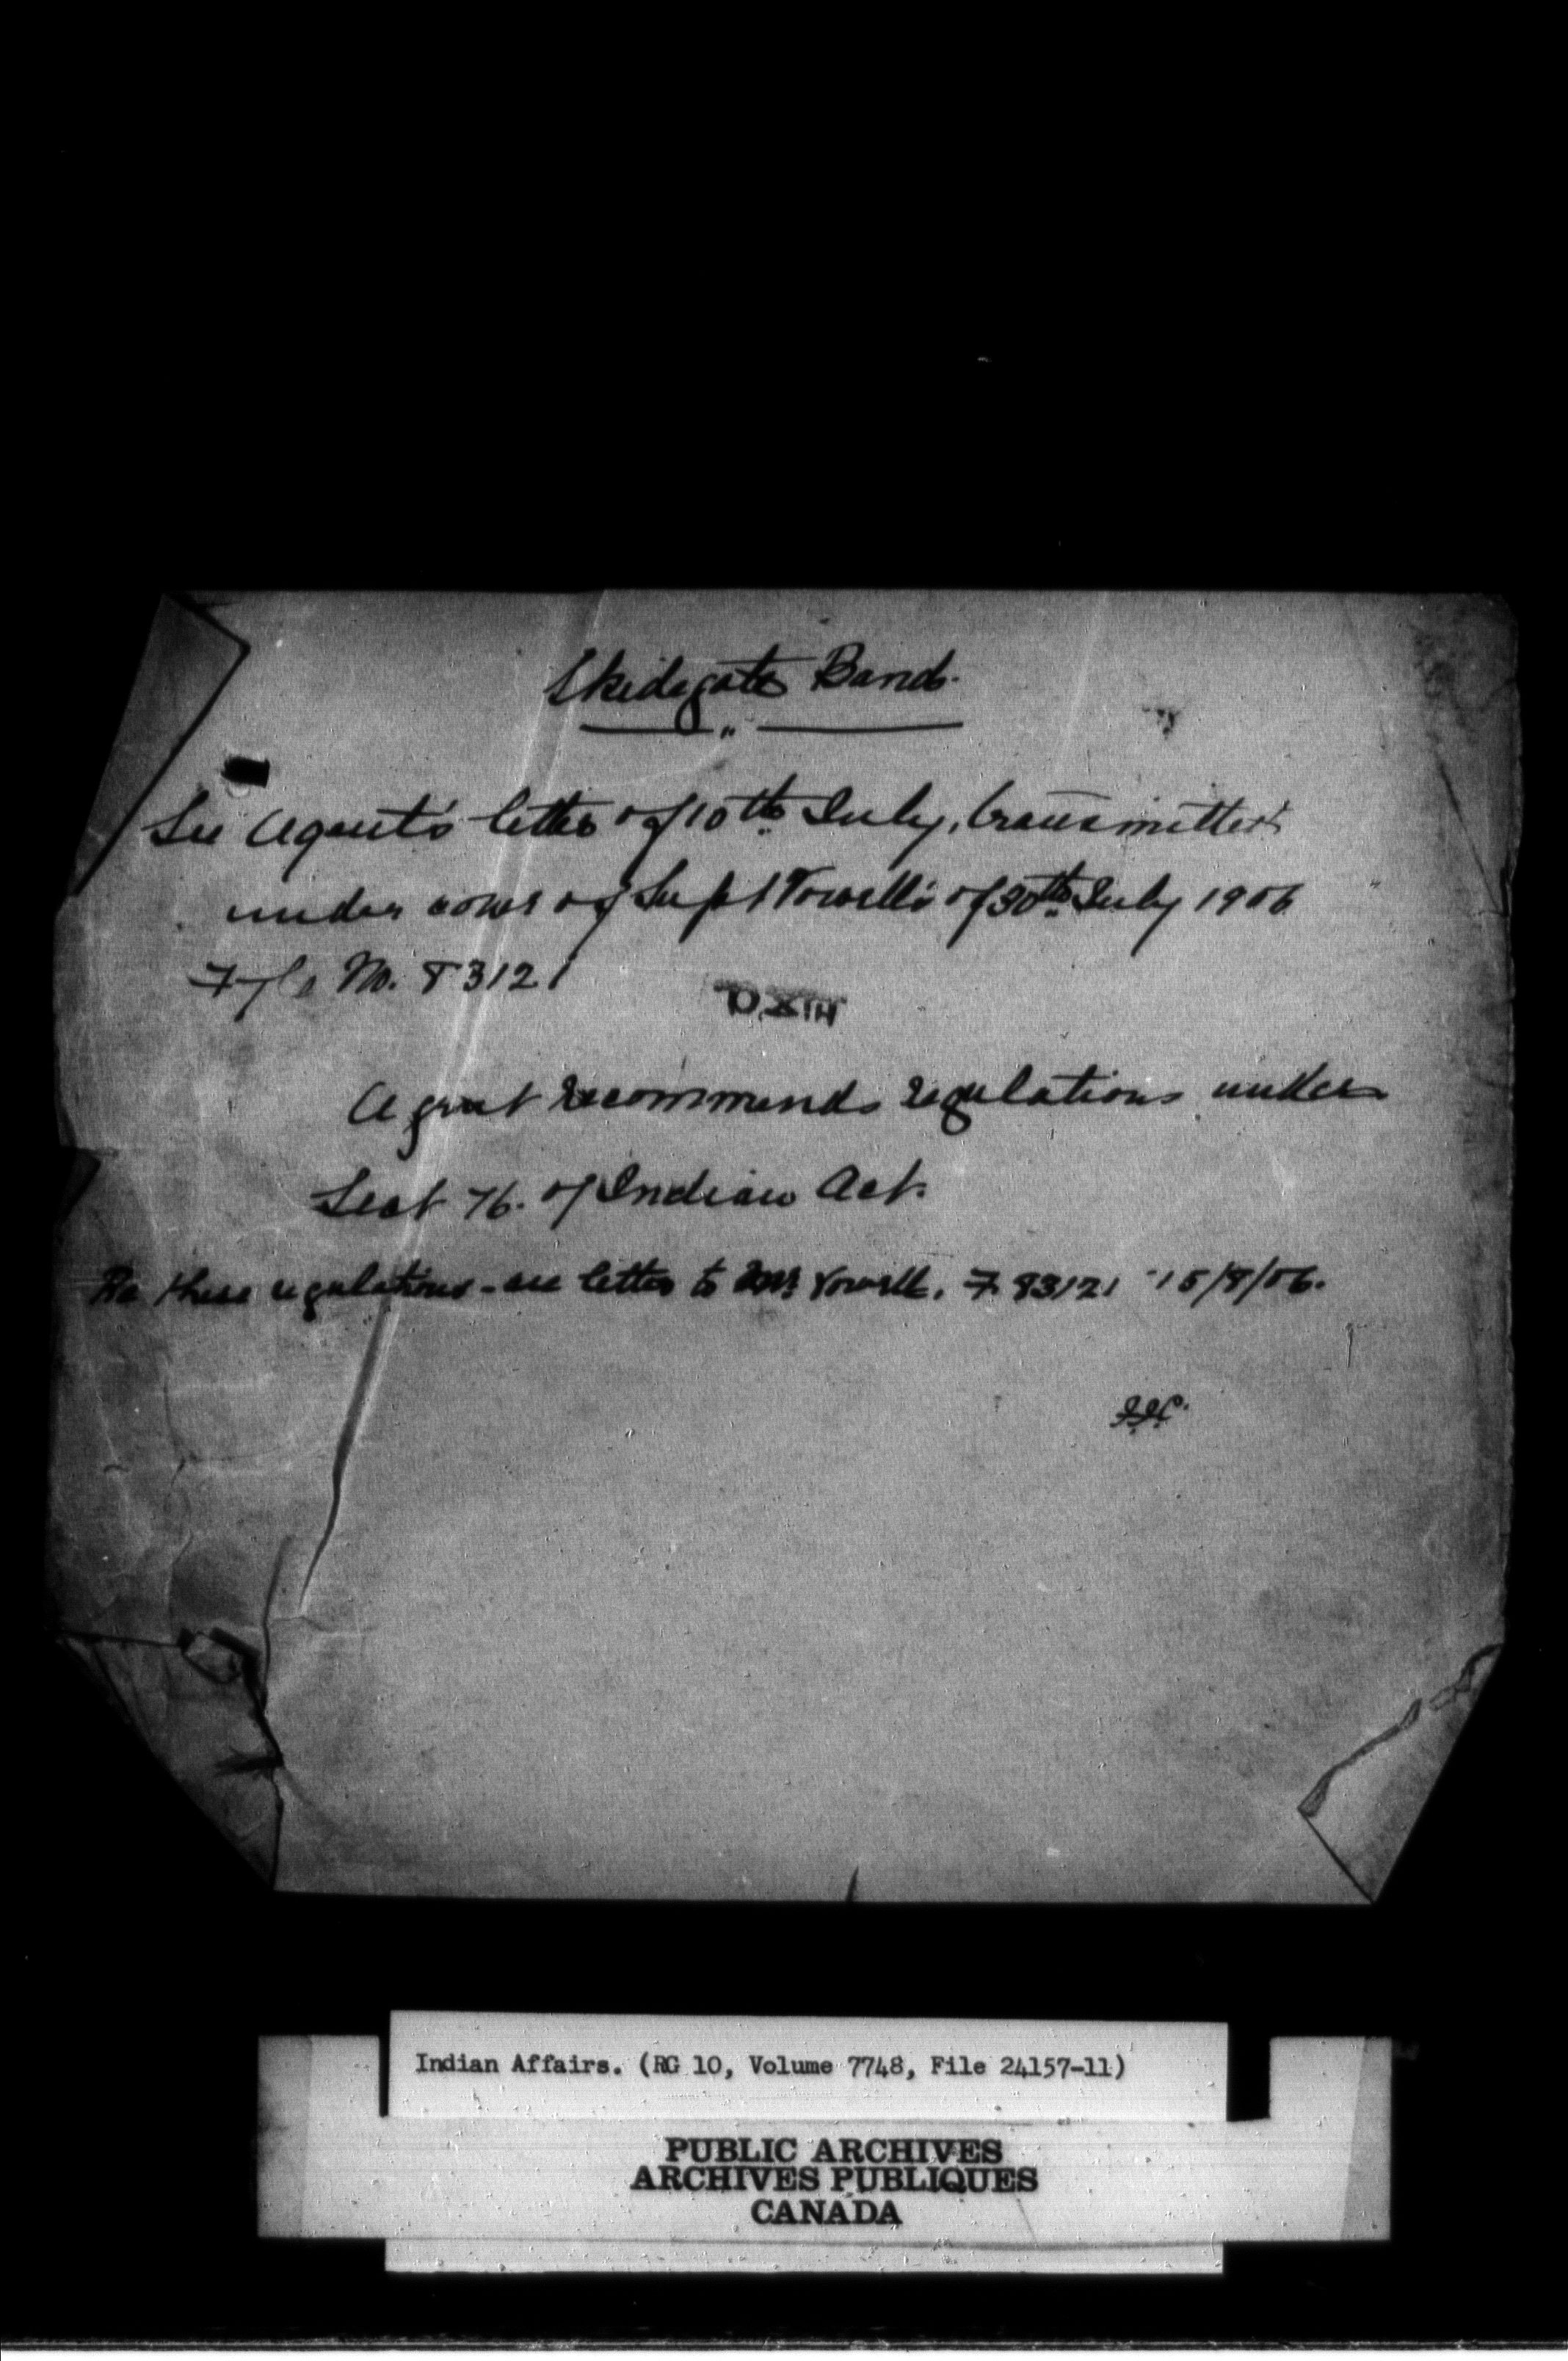 Skidegate Band.
See Agent's letter of 10th July, transmitted
under cover of Supt Vowell's of 30th July 1906
File No. 83121
Agent recommends regulations under
Sect 76. of Indian Act.
Re these regulations - see letter to Mr Vowell. F. 83121 15/8/06.
Indian Affairs. (RG 10, Volume 7748, File 24157-11)
PUBLIC ARCHIVES
ARCHIVES PUBLIQUES
CANADA